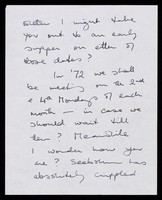 Either I might take
you out to an early
supper on either of
those dates?
In '72 we shall
be meeting on the 2nd
& 4th Mondays of each
month – in case we
should wait till
then? Meanwhile
I wonder how you
are? Seebohm has
absolutely crippled